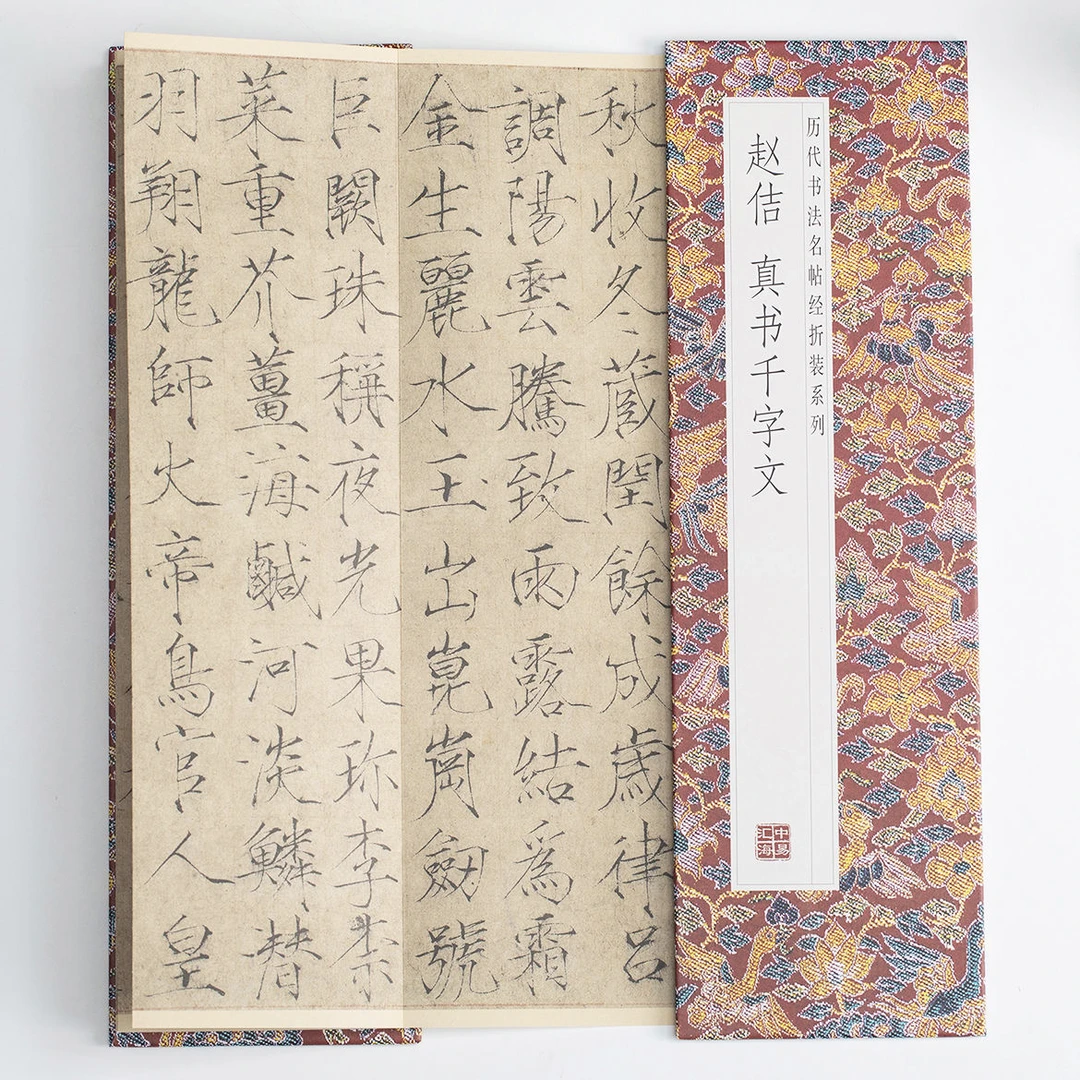 历代书法名帖经折装系列
赵佶 真书千字文
中
汇海
秋收冬蔵閏餘成歲律呂
調陽雲騰致雨露結爲霜
金生麗水玉出崑崗劔號
巨闕珠稱夜光果珎李柰
菜重芥薑海鹹河淡鱗潛
羽翔龍師火帝鳥官人皇